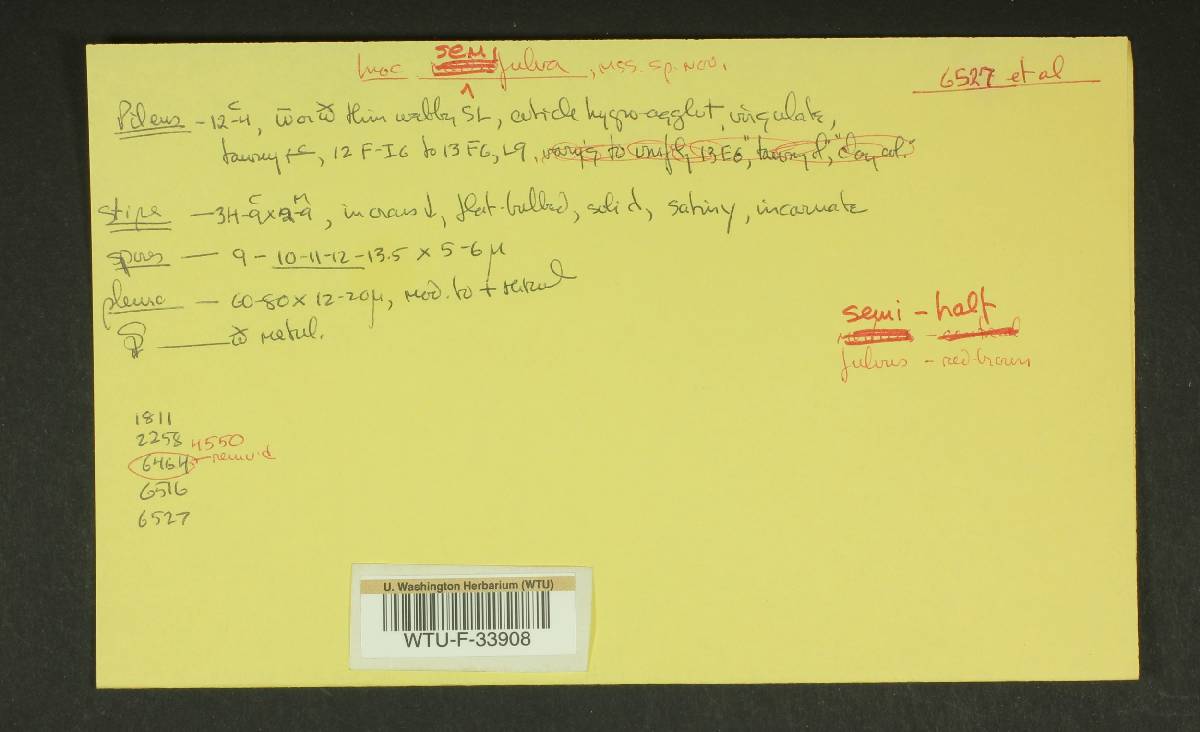 Inoc semi fulva, mss. sp. nov.
6527 et al
Pileus - 12-4, w̄ or w̆ thin webby SL, cuticle hygro-agglut, virgulate,
tawny ±, 12 F-I6 to 13 F6, L9, vary'g to unif'ly 13E6", "tawny d", "clay col."
stipe — 3H-9 x 2-9, incrass'd, flat-bulbed, solid, satiny, incarnate
spores — 9 - 10-11-12 -13.5 x 5-6 μ
pleuro — 60-80 x 12-20μ, mod. to + metul
w̆ metul.
semi - half
fulvus - red-brown
1811
2258
4550
6464 remv'd
6516
6527
U. Washington Herbarium (WTU)
WTU-F-33908